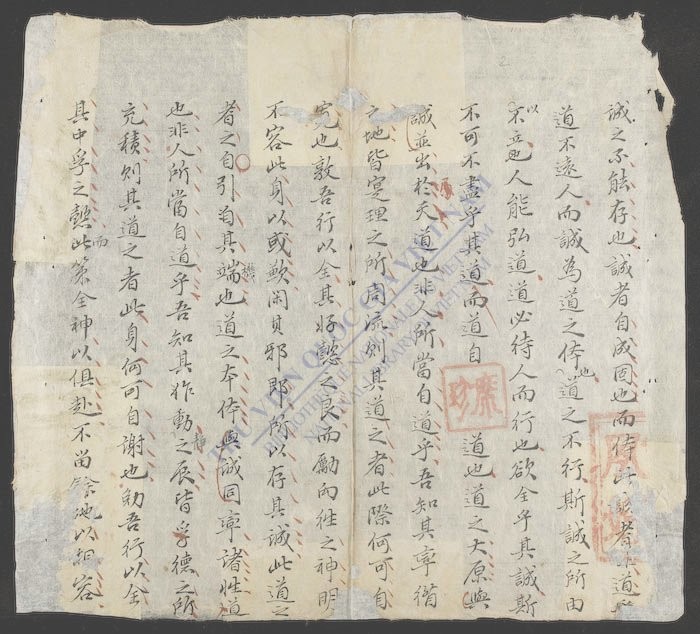 誠之不能存也誠者自成固也而待此誠者乎道也
道不遠人而誠為道之体也道之不行斯誠之所由
以不立也人能弘道道必待人而行也欲全乎其誠斯
不可不盡乎其道而道自道也道之大原與
誠並出於天道也非人所當自道乎吾知其率循
之地皆寔理之所周流則其道之者此際何可自
寬也敦吾行以全其好懿之良而勵向往之神明
不容此身以或歉閑其邪即所以存其誠此道之
者之自引為其端也道之本体與誠同率諸性道
也非人所當自道乎吾知其作動之辰皆孚德之所
充積則其道之者此身何可自謝也勉吾行以全
其中孚之懿而此策全神以俱赴不尚餘地以相容
THƯ VIỆN QUỐC GIA VIỆT NAM
BIBLIOTHÈQUE NATIONALE DU VIETNAM
NATIONAL LIBRARY OF VIETNAM